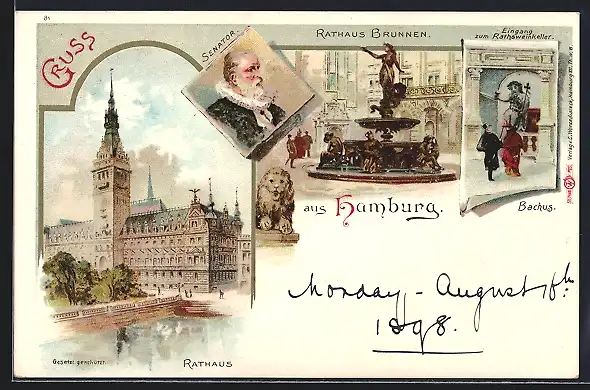 84
GRUSS
SENATOR.
RATHAUS BRUNNEN.
Eingang
zum Rathsweinkeller.
aus Hamburg.
Bachus.
Monday - August 15th
1898.
Gesetzl. geschützt.
RATHAUS
Verlag Hamburg